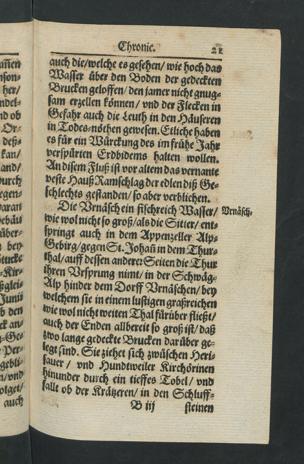 Chronic. 21
auch die/welche es gesehen/ wie hoch das
Wasser über den Boden der gedeckten
Brucken geloffen/ den jamer nicht gnug-
sam erzellen können/ vnd der Flecken in
Gefahr auch die Leuth in den Häuseren
in Todes-nöthen gewesen. Etliche haben
es für ein Würckung des im frühe Jahr
verspürten Erdbidems halten wollen.
An disem Fluß ist vor altem das vernante
veste Hauß Ramschlag der edlen diß Ge-
schlechts gestanden/ so aber verblichen.
Die Vrnäsch ein fischreich Wasser/
Vrnäsch.
wie wol nicht so groß/als die Sitter/ ent-
springt auch in dem Appenzeller Alp-
Gebirg/ gegen St. Johañ in dem Thur-
thal/ auff dessen anderer Seiten die Thur
ihren Vrsprung nimt/ in der Schwäg-
Alp hinder dem Dorff Vrnäschen/ bey
welchem sie in einem lustigen graßreichen
wie wol nicht weiten Thal fürüber fließt/
auch der Enden allbereit so groß ist/ daß
zwo lange gedeckte Brucken darüber ge-
legt sind. Sie ziehet sich zwüschen Heri-
sauer/ vnd Hundtweiler Kirchörinen
hinunder durch ein tieffes Tobel/ vnd
fallt ob der Kräzeren/ in den Schluff-
B iij steinen